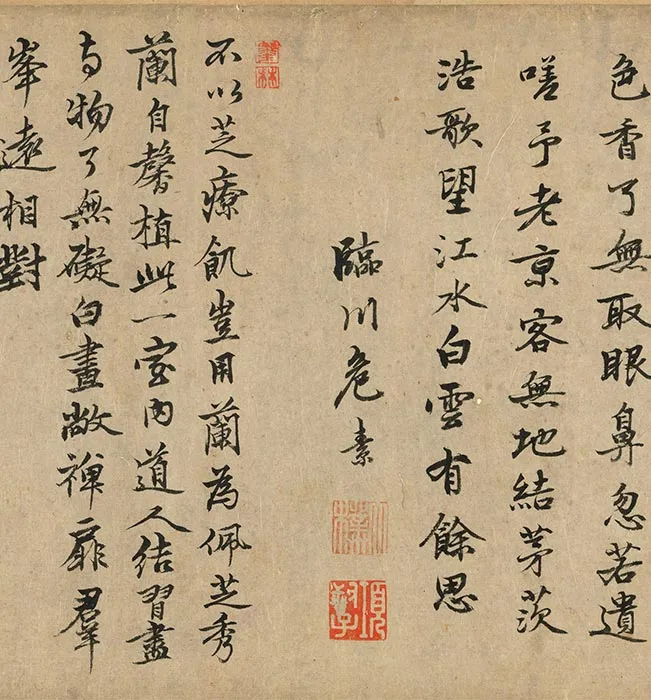 色香了無取眼鼻忽若遺
嗟予老京客無地結茅茨
浩歌望江水白雲有餘思
臨川危素
不以芝療飢豈用蘭為佩芝秀
蘭自馨植此一室內道人結習盡
与物了無礙白晝敞禪扉群
峯遠相對